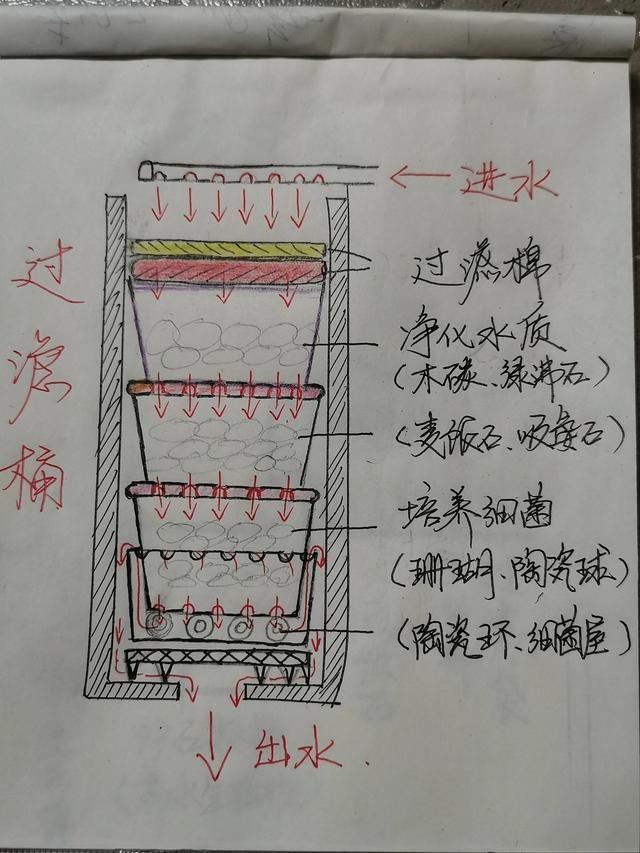 进水
过滤桶
过滤棉
净化水质
(木碳、绿沸石)
(麦饭石、吸氨石)
培养细菌
(珊瑚、陶瓷球)
(陶瓷环、细菌屋)
出水.